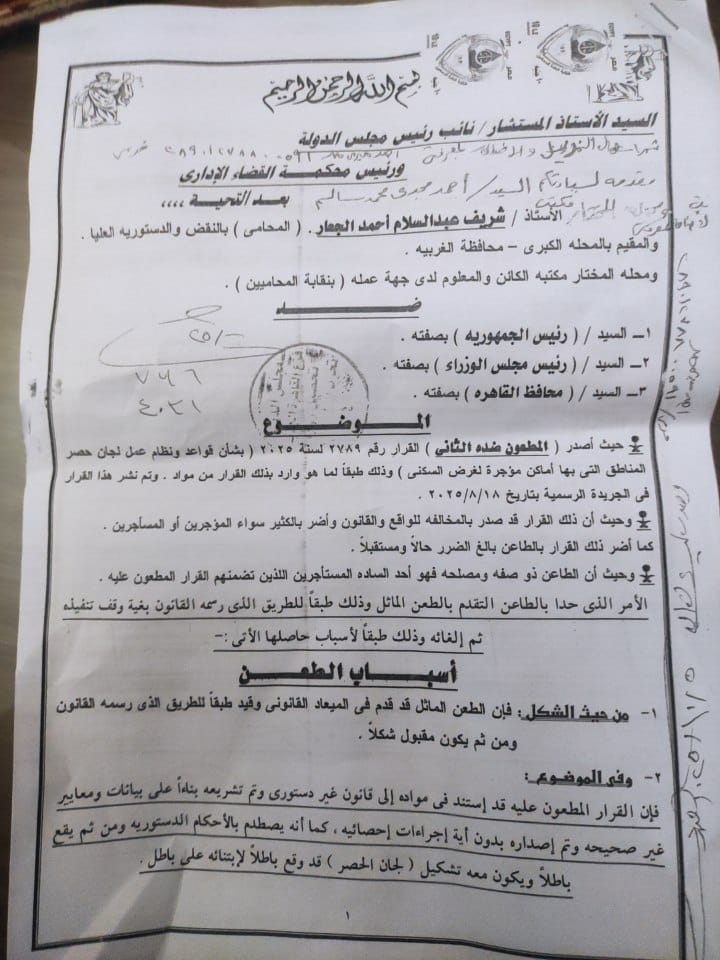 بسم الله الرحمن الرحيم
السيد الأستاذ المستشار / نائب رئيس مجلس الدولة
ورئيس محكمة القضاء الإدارى
بعد التحية ,,,,
مقدمه لسيادتكم السيد / أحمد مجدى محمد سالم
الأستاذ / شريف عبدالسلام أحمد الجعار . ( المحامى ) بالنقض والدستوريه العليا .
والمقيم بالمحله الكبرى – محافظة الغربيه .
ومحله المختار مكتبه الكائن والمعلوم لدى جهة عمله ( بنقابة المحاميين ) .
ضد
١ــ السيد / ( رئيس الجمهوريه ) بصفته .
٢ــ السيد / ( رئيس مجلس الوزراء ) بصفته .
٣ــ السيد / ( محافظ القاهره ) بصفته .
٧٤٦
الموضوع
حيث أصدر ( المطعون ضده الثانى ) القرار رقم ٢٧٨٩ لسنة ٢٠٢٥ ( بشأن قواعد ونظام عمل لجان حصر
المناطق التى بها أماكن مؤجرة لغرض السكنى ) وذلك طبقاً لما هو وارد بذلك القرار من مواد . وتم نشر هذا القرار
فى الجريدة الرسمية بتاريخ ٢٠٢٥/٨/١٨ .
وحيث أن ذلك القرار قد صدر بالمخالفه للواقع والقانون وأضر بالكثير سواء المؤجرين أو المسأجرين .
كما أضر ذلك القرار بالطاعن بالغ الضرر حالاً ومستقبلاً .
وحيث أن الطاعن ذو صفه ومصلحه فهو أحد الساده المستأجرين اللذين تضمنهم القرار المطعون عليه .
الأمر الذى حدا بالطاعن التقدم بالطعن الماثل وذلك طبقاً للطريق الذى رسمه القانون بغية وقف تنفيذه
ثم إلغائه وذلك طبقاً لأسباب حاصلها الأتى :-
أسباب الطعن
١- من حيث الشكل : فإن الطعن الماثل قد قدم فى الميعاد القانونى وقيد طبقاً للطريق الذى رسمه القانون
ومن ثم يكون مقبول شكلاً .
٢- وفى الموضوع :
فإن القرار المطعون عليه قد إستند فى مواده إلى قانون غير دستورى وتم تشريعه بناءاً على بيانات ومعايير
غير صحيحه وتم إصداره بدون أية إجراءات إحصائيه ، كما أنه يصطدم بالأحكام الدستوريه ومن ثم يقع
باطلاً ويكون معه تشكيل ( لجان الحصر ) قد وقع باطلاً لإبتنائه على باطل .
١